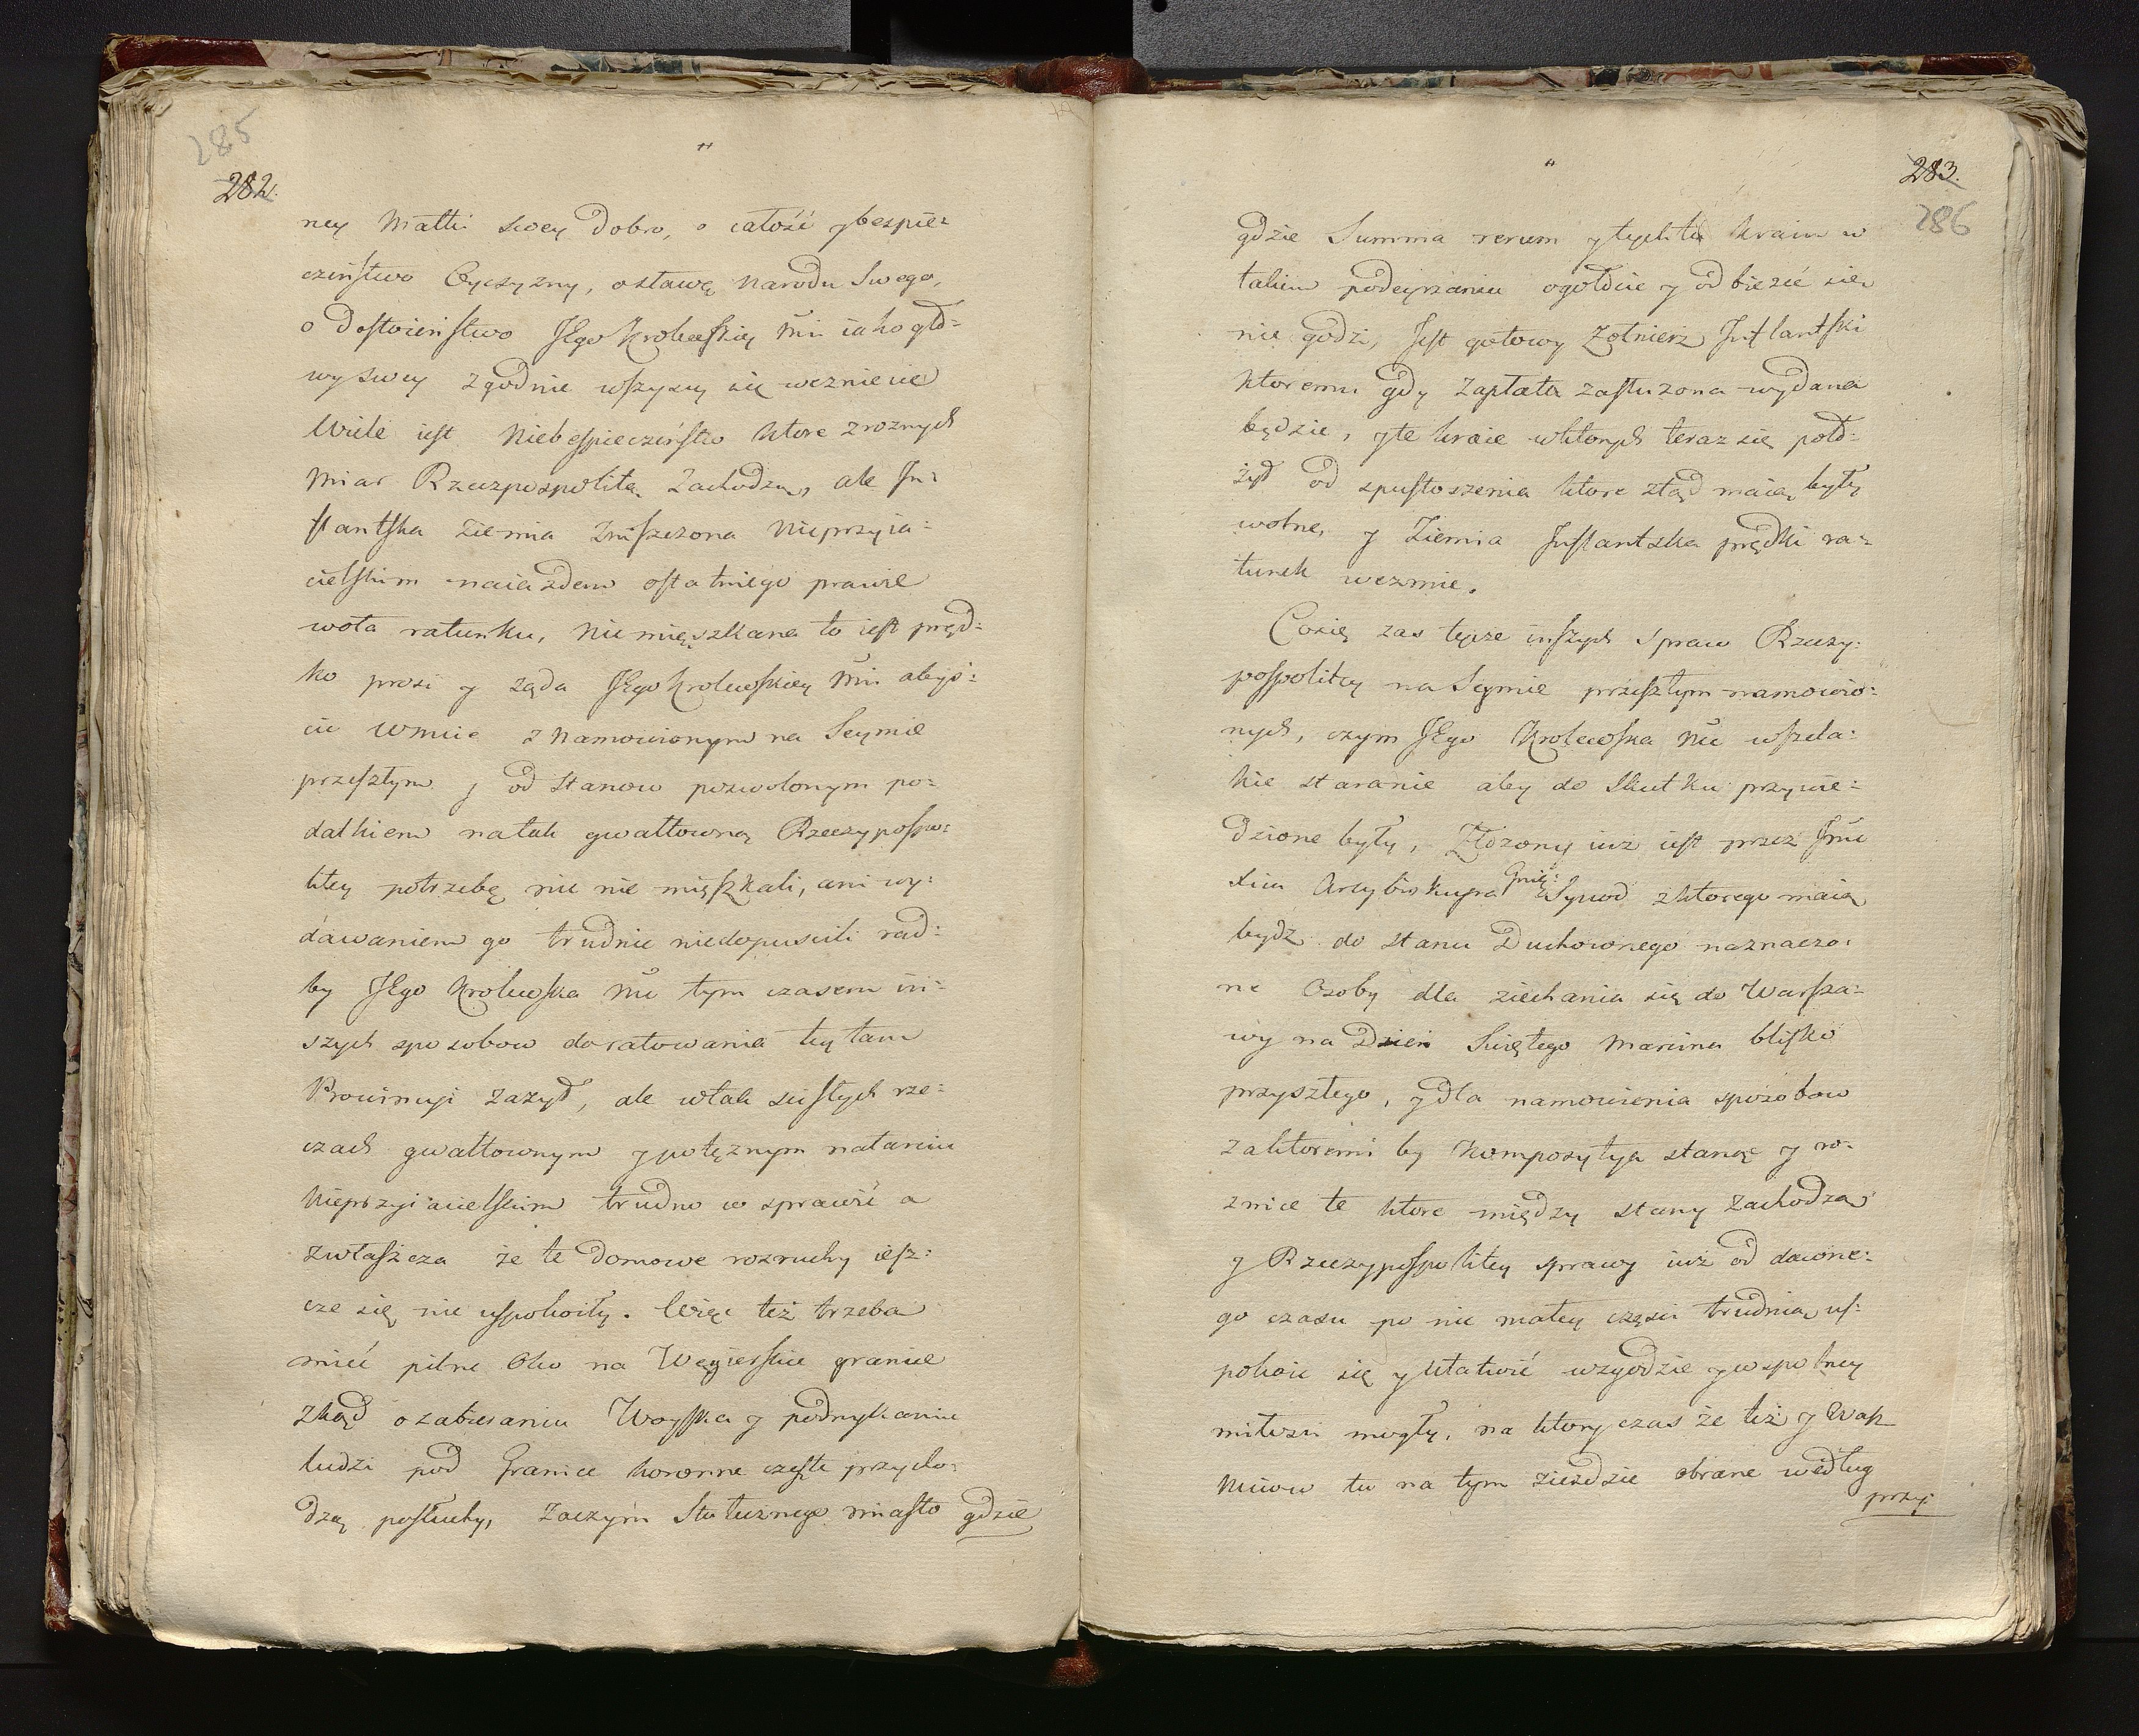 285
282.
"
ney Matki swey dobro, o całość y bespie=
czeństwo Oyczyzny, o sławę Narodu Swego,
o Dostoieństwo JEgo Krolewskiey Mci iako gło=
wy swey zgodnie wszyscy się wezmiecie
Wiele iest Niebespieczeństw ktore z roznych
Miar Rzeczpospolitą zachodzą, ale In=
flantska ziemia zniszczona Nieprzyia=
cielskim naiazdem ostatniego prawie
woła ratunku, Niemięszkana to iest pręd=
ko prosi y ząda JEgo Krolewskiey Mci abyś=
cie Wmcie z Namowionym na Seymie
przeszłym y od Stanow pozwolonym po=
datkiem na tak gwałtowną Rzeczypospo=
litey potrzebę nic nie mięszkali, ani wy=
dawaniem go trudnic niedopuscili rad=
by JEgo Krolewska Mc tym czasem in=
szych sposobow do ratowania tey tam
Prowincyi zazył, ale w tak scisłych rze=
czach gwałtownym y potęznym natarciu
Nieprzyiacielskim trudno w sprawie a
zwłaszcza że te domowe rozruchy iesz=
cze się nie uspokoiły. Więc też trzeba
mieć pilne Oko na Węgierskie granice
zkąd o zabieraniu Woyska y podmykaniu
ludzi pod Granice koronne częste przycho=
dzą posłuchy, zaczym Stołecznego miasto gdzie
"
283.
286
gdzie Summa rerum y tychtu kraiw w
takim podeyrzaniu ogołdcić y odbieżeć się
nie godzi, Jest gotowy Zołnierz Inflantski
ktoremu gdy Zapłata zasłuzona wydana
będzie, y te kraie w ktorych teraz się poło=
żył od spustoszenia ktore ztąd maią były
wolne, y Ziemia Inflantska prędki ra=
tunek wezmie.
Co się zas tycze inszych Spraw Rzeczy=
pospolitey na Seymie przeszłym namowio=
nych, czym JEgo Krolewska Mc wszela=
kie staranie aby do skutku przywie=
dzione były, Złozony iuz iest przez Jmci
Xiu Arcybiskupa Gnię: Synod z ktorego maią
bydz do stanu Duchownego naznaczo=
ne Osoby dla ziechania się do Warsza=
wy na Dzien Swiętego Marcina blisko
przyszłego, y dla namowienia sposobow
za ktoremi by Kompozytya stanąć y ro=
znice te ktore między stany zachodzą
y Rzeczypospolitey sprawy iuż od dawne=
go czasu po nie małey części trudnią us=
pokoic się y ułatwić w zgodzie y wspolney
miłosci mogły, na ktory czas że też y Wasz
Mciow tu na tym ziezdzie obrane według
przy